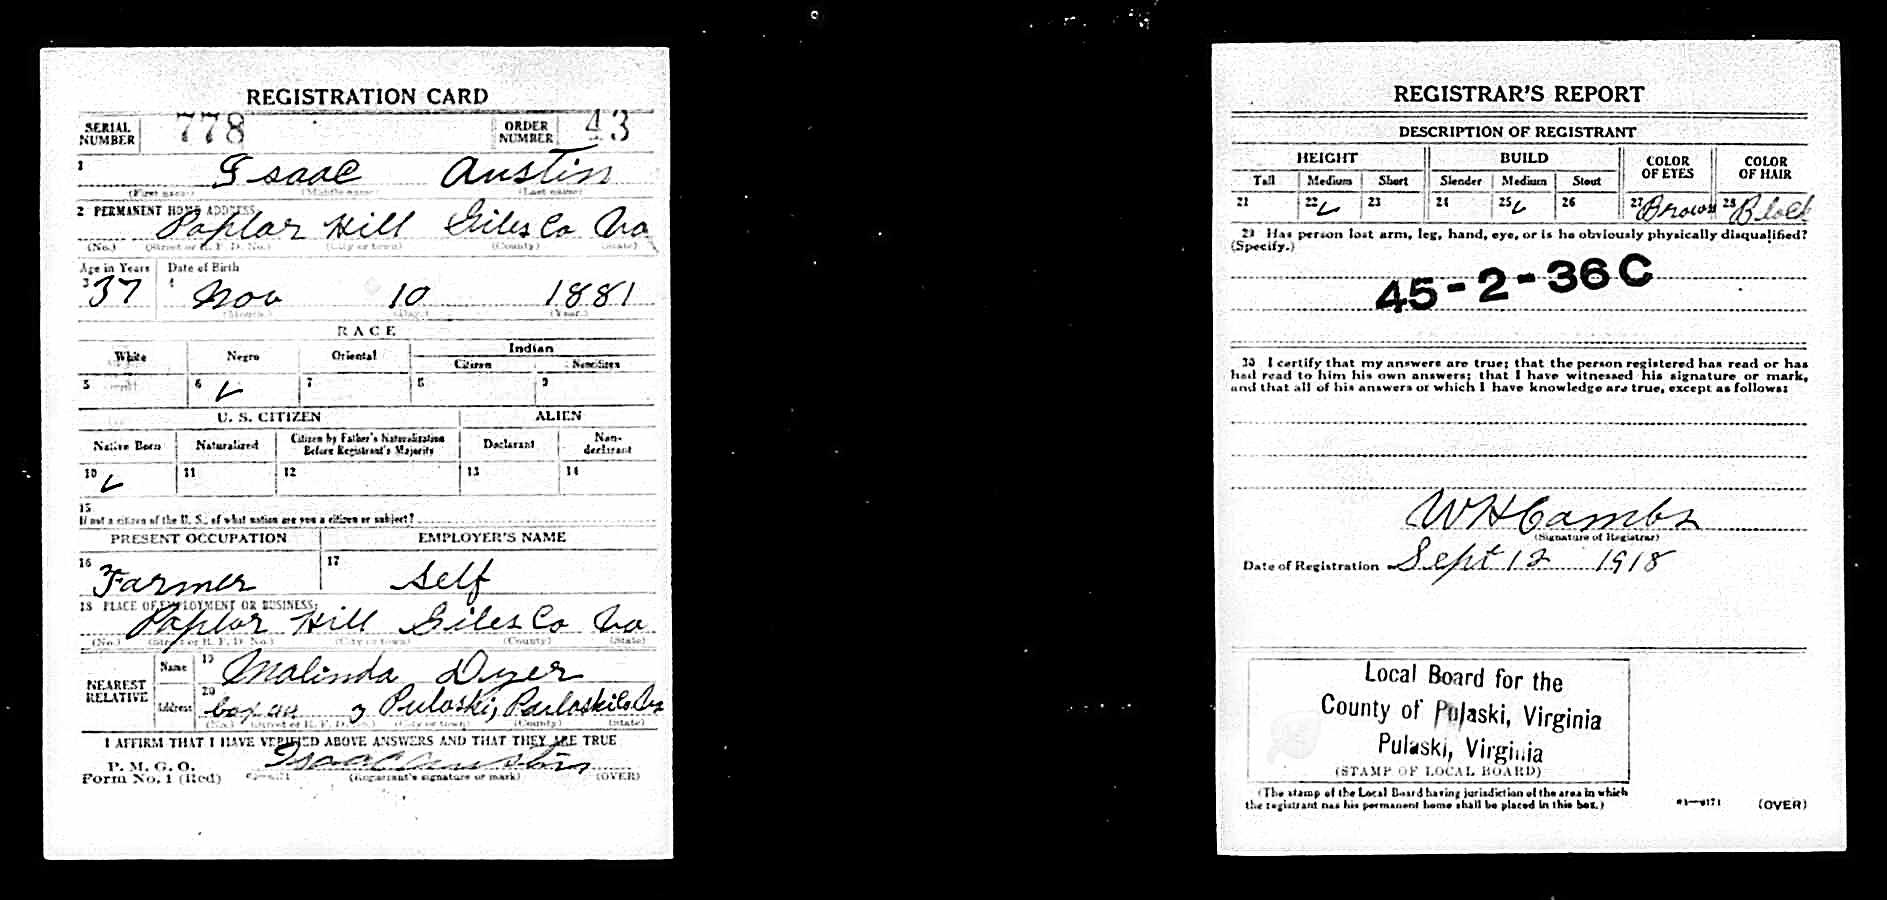 REGISTRATION CARD
SERIAL NUMBER 778 ORDER NUMBER 43
1 Isaac Austin
(First name) (Middle name) (Last name)
2 PERMANENT HOME ADDRESS:
Poplar Hill Giles Co Va
(No.) (Street or R. F. D. No.) (City or town) (County) (State)
Age in Years Date of Birth
3 37 4 Nov 10 1881
(Month.) (Day.) (Year.)
RACE
White Negro Oriental Indian
Citizen Noncitizen
5 6 ✓ 7 8 9
U. S. CITIZEN ALIEN
Native Born Naturalized Citizen by Father's Naturalization Before Registrant's Majority Declarant Non-declarant
10 ✓ 11 12 13 14
15
If not a citizen of the U. S., of what nation are you a citizen or subject?
PRESENT OCCUPATION EMPLOYER'S NAME
16 Farmer 17 Self
18 PLACE OF EMPLOYMENT OR BUSINESS:
Poplar Hill Giles Co Va
(No.) (Street or R. F. D. No.) (City or town) (County) (State)
NEAREST RELATIVE Name 19 Malinda Dyer
Address 20 Pulaski, Pulaski Co Va
(No.) (Street or R. F. D. No.) (City or town) (County) (State)
I AFFIRM THAT I HAVE VERIFIED ABOVE ANSWERS AND THAT THEY ARE TRUE
P. M. G. O.
Form No. 1 (Red) Isaac Austin
(Registrant's signature or mark) (OVER)
REGISTRAR'S REPORT
DESCRIPTION OF REGISTRANT
HEIGHT BUILD COLOR OF EYES COLOR OF HAIR
Tall Medium Short Slender Medium Stout
21 22 ✓ 23 24 25 ✓ 26 27 Brown 28 Black
29 Has person lost arm, leg, hand, eye, or is he obviously physically disqualified?
(Specify.)
45-2-36 C
30 I certify that my answers are true; that the person registered has read or has
had read to him his own answers; that I have witnessed his signature or mark,
and that all of his answers of which I have knowledge are true, except as follows:
W H Cambs
(Signature of Registrar)
Date of Registration Sept 12 1918
Local Board for the
County of Pulaski, Virginia
Pulaski, Virginia
(STAMP OF LOCAL BOARD)
(The stamp of the Local Board having jurisdiction of the area in which
the registrant has his permanent home shall be placed in this box.)
(OVER)